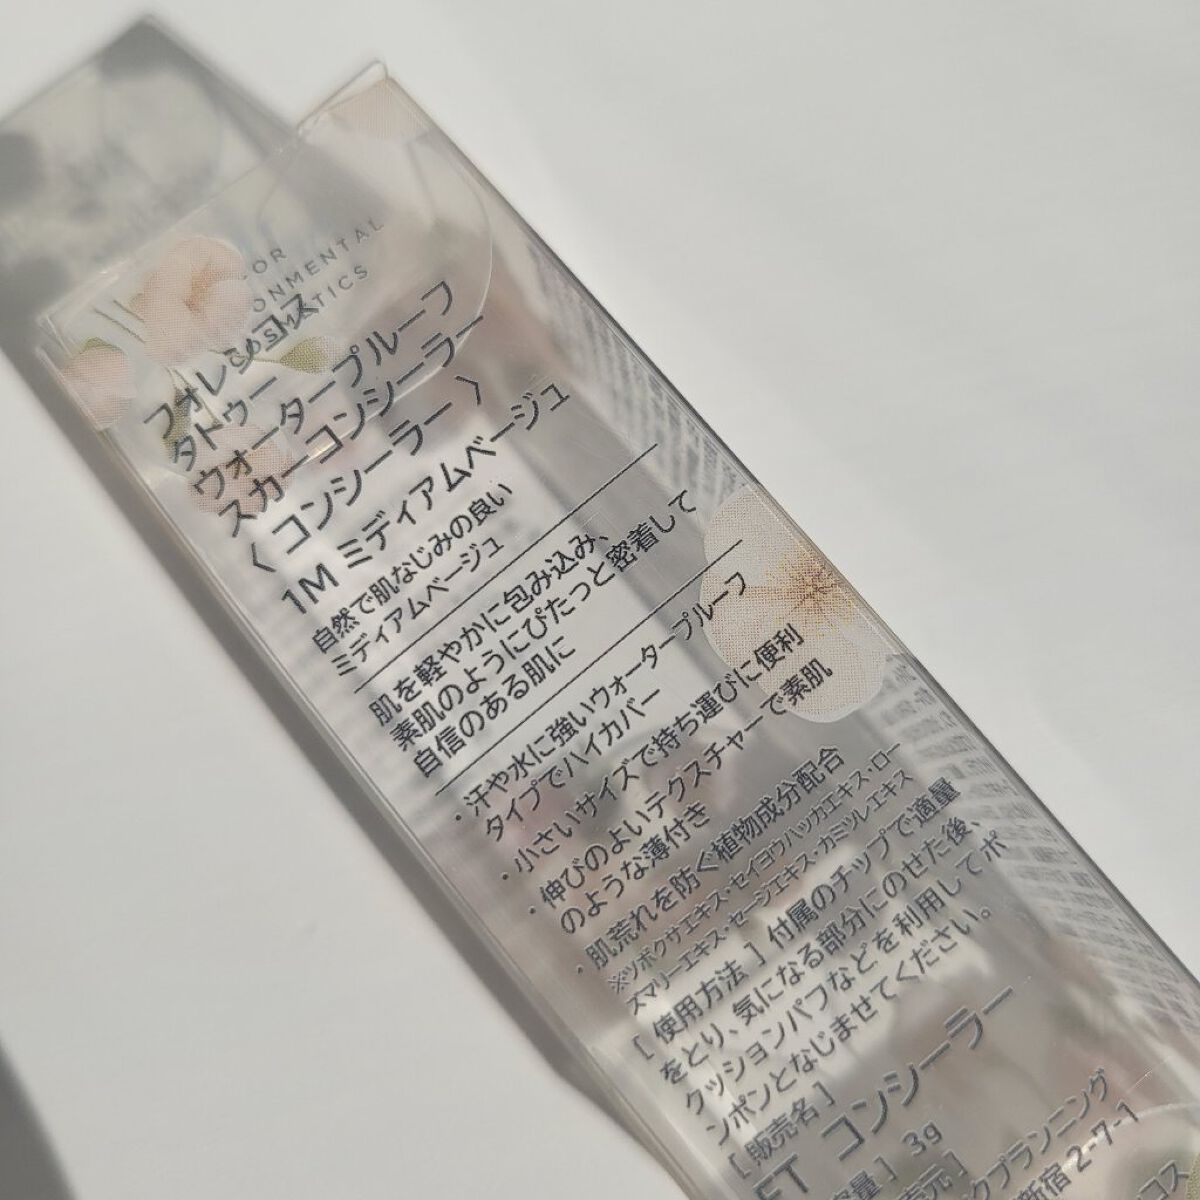 FOR
ONMENTAL
COSMETICS
フォレンコス
タトゥー
ウォータープルーフ
スカーコンシーラー
〈コンシーラー〉
1M ミディアムベージュ
自然で肌なじみの良い
ミディアムベージュ
肌を軽やかに包み込み、
素肌のようにぴたっと密着して
自信のある肌に
・汗や水に強いウォータープルーフ
タイプでハイカバー
・小さいサイズで持ち運びに便利
・伸びのよいテクスチャーで素肌
のような薄付き
・肌荒れを防ぐ植物成分配合
※ツボクサエキス・セイヨウハッカエキス・ロー
ズマリーエキス・セージエキス・カミツレエキス
[ 使用方法 ] 付属のチップで適量
をとり、気になる部分にのせた後、
クッションパフなどを利用してポ
ンポンとなじませてください。
[ 販売名 ]
FT コンシーラー
容量 ] 3g
売元 ]
クプランニング
新宿 2-7-1
コス